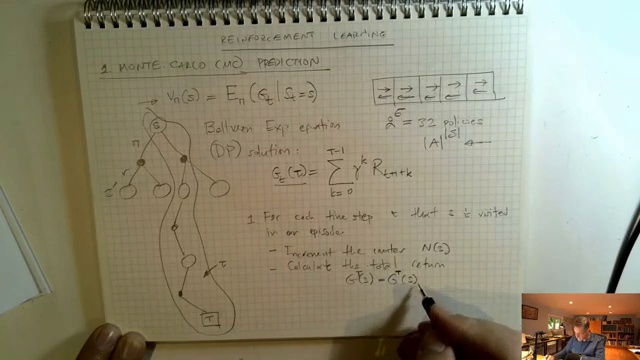 REINFORCEMENT LEARNING
1. MONTE-CARLO (MC) PREDICTION
→ Vπ(s) = Eπ(Gt | St=s)
2^5 = 32 policies
|A|^|S| ←
Bellman Exp. equation
(DP) solution:
Gt(τ) = Σ_{k=0}^{T-1} γ^k R_{t+1+k}
S
π
r
s'
τ
T
1 For each time step t that s is visited
in an episode
- Increment the counter N(s)
- Calculate the total return
G^T(s) = G^T(s)